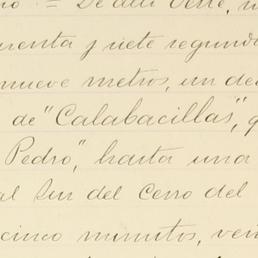 = De allí Oeste,
cuenta y siete segundo
nueve metros, un de
de "Calabacillas",
Pedro", hasta una
al Sur del Cerro del
cinco minutos, ven